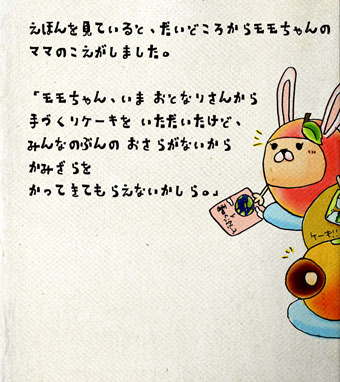 えほんを見ていると、だいどころからモモちゃんの
ママのこえがしました。
「モモちゃん、いま おとなりさんから
手づくりケーキを いただいたけど、
みんなのぶんの おさらがないから
かみざらを
かってきてもらえないかしら。」
ケーキ!!